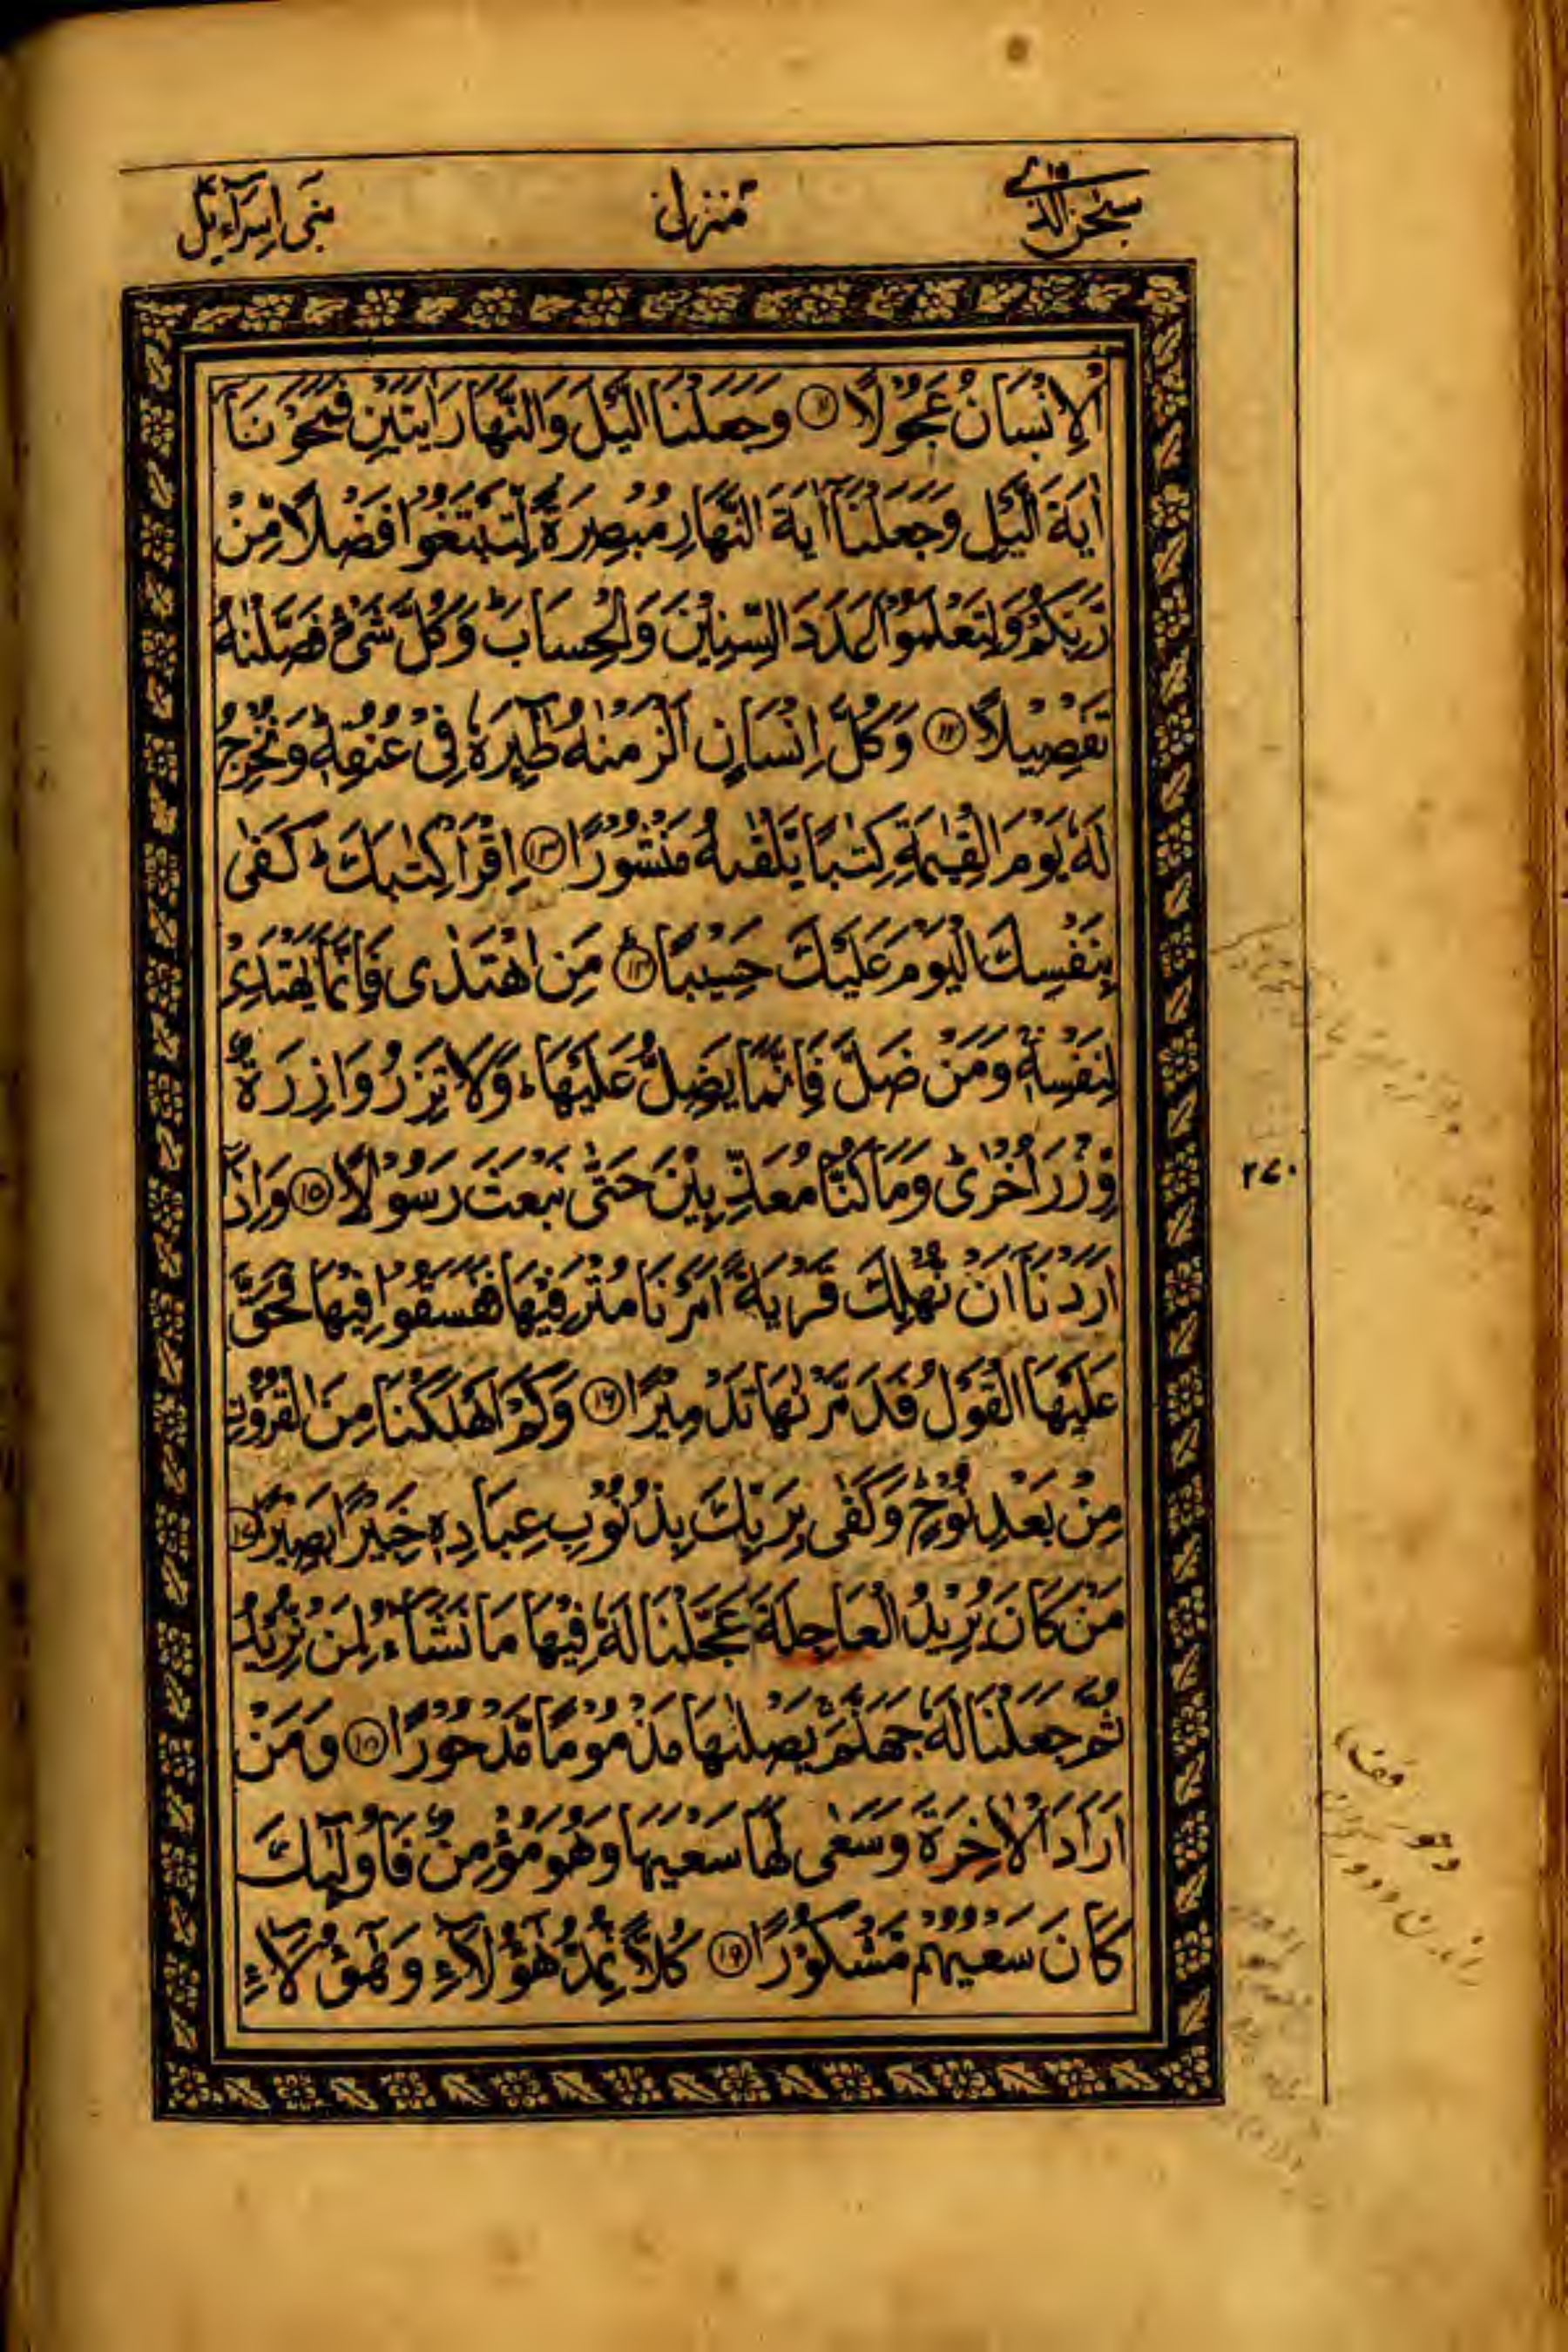 سبحن الذی ۱۵
منزل ۴
بنی اسرآءیل
الْاِنْسَانُ عَجُوْلًا ۝۱۱ وَجَعَلْنَا الَّیْلَ وَالنَّهَارَ اٰیَتَیْنِ فَمَحَوْنَاۤ
اٰیَةَ الَّیْلِ وَجَعَلْنَاۤ اٰیَةَ النَّهَارِ مُبْصِرَةً لِّتَبْتَغُوْا فَضْلًا مِّنْ
رَّبِّكُمْ وَلِتَعْلَمُوْا عَدَدَ السِّنِیْنَ وَالْحِسَابَ ؕ وَكُلَّ شَیْءٍ فَصَّلْنٰهُ
تَفْصِیْلًا ۝۱۲ وَكُلَّ اِنْسَانٍ اَلْزَمْنٰهُ طٰٓئِرَهٗ فِیْ عُنُقِهٖ ؕ وَنُخْرِجُ
لَهٗ یَوْمَ الْقِیٰمَةِ كِتٰبًا یَّلْقٰىهُ مَنْشُوْرًا ۝۱۳ اِقْرَاْ كِتٰبَكَ ؕ كَفٰی
بِنَفْسِكَ الْیَوْمَ عَلَیْكَ حَسِیْبًا ۝۱۴ مَنِ اهْتَدٰی فَاِنَّمَا یَهْتَدِیْ
لِنَفْسِهٖ ۚ وَمَنْ ضَلَّ فَاِنَّمَا یَضِلُّ عَلَیْهَا ؕ وَلَا تَزِرُ وَازِرَةٌ
وِّزْرَ اُخْرٰی ؕ وَمَا كُنَّا مُعَذِّبِیْنَ حَتّٰی نَبْعَثَ رَسُوْلًا ۝۱۵ وَاِذَاۤ
اَرَدْنَاۤ اَنْ نُّهْلِكَ قَرْیَةً اَمَرْنَا مُتْرَفِیْهَا فَفَسَقُوْا فِیْهَا فَحَقَّ
عَلَیْهَا الْقَوْلُ فَدَمَّرْنٰهَا تَدْمِیْرًا ۝۱۶ وَكَمْ اَهْلَكْنَا مِنَ الْقُرُوْنِ
مِنْۢ بَعْدِ نُوْحٍ ؕ وَكَفٰی بِرَبِّكَ بِذُنُوْبِ عِبَادِهٖ خَبِیْرًۢا بَصِیْرًا ۝۱۷
مَنْ كَانَ یُرِیْدُ الْعَاجِلَةَ عَجَّلْنَا لَهٗ فِیْهَا مَا نَشَآءُ لِمَنْ نُّرِیْدُ
ثُمَّ جَعَلْنَا لَهٗ جَهَنَّمَ ۚ یَصْلٰىهَا مَذْمُوْمًا مَّدْحُوْرًا ۝۱۸ وَمَنْ
اَرَادَ الْاٰخِرَةَ وَسَعٰی لَهَا سَعْیَهَا وَهُوَ مُؤْمِنٌ فَاُولٰٓئِكَ
كَانَ سَعْیُهُمْ مَّشْكُوْرًا ۝۱۹ كُلًّا نُّمِدُّ هٰۤؤُلَآءِ وَهٰۤؤُلَآءِ
۲۷۰